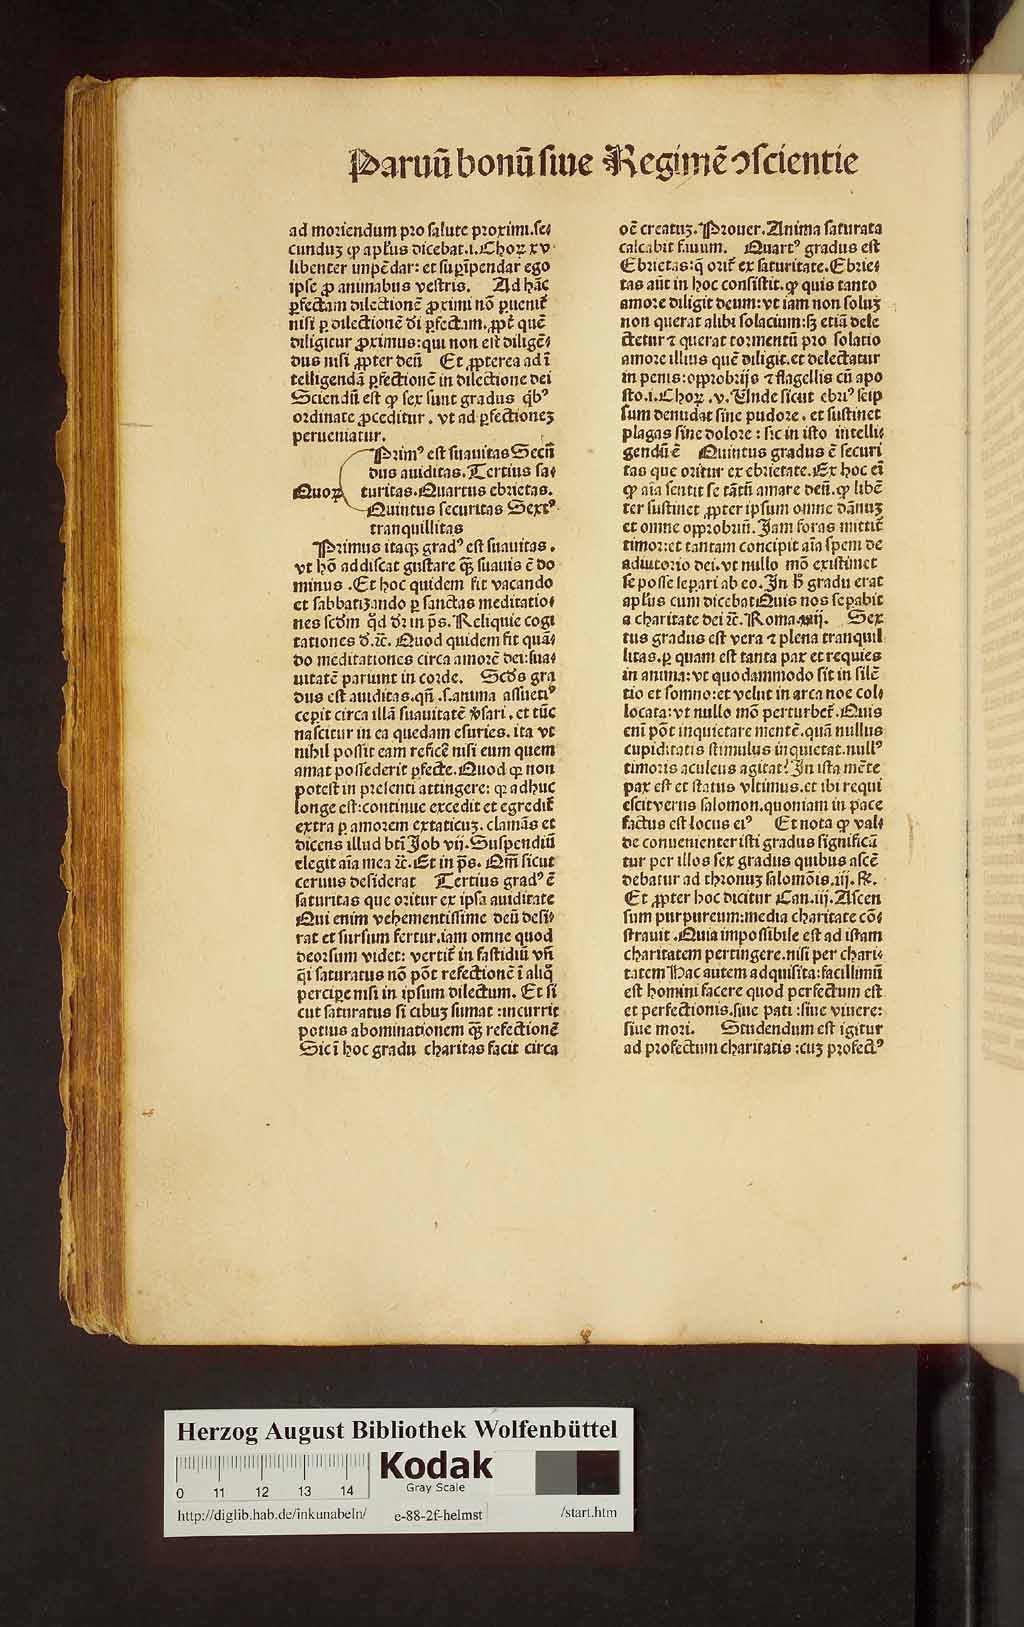 Paruū bonū siue Regimē ↄscientie
ad moriendum pro salute proximi.se⸗
cunduʒ ꝙ apl'us dicebat.i.Choꝝ xv.
libenter impēdar: et suꝑīpendar ego
ipse ꝓ animabus vestris. Ad hāc
ꝑfectam dilectionē ꝓximi nō ꝑuenit̄
nisi ꝑ dilectionē d̄i ꝑfectam.ꝓpt̄ quē
diligitur ꝓximus:qui non est diligē⸗
dus nisi ꝓpter deū Et ꝓpterea ad ī
telligendā ꝑfectionē in dilectione dei
Sciendū est ꝙ sex sunt gradus q̄bꝰ
ordinate ꝓceditur. vt ad ꝑfectioneʒ
perueniatur.
Primꝰ est suauitas Secū
dus auiditas.Tertius sa⸗
Quoꝝ turitas.Quartus ebrietas.
Quintus securitas Sextꝰ
tranquillitas
Primus itaqʒ gradꝰ est suauitas.
vt hō addiscat gustare q̄ʒ suauis ē do
minus.Et hoc quidem fit vacando
et sabbatizando ꝑ sanctas meditatio⸗
nes scd̄m q̄d d̄r in p̄s.Reliquie cogi
tationes ⁊c̄.Quod quidem fit quā⸗
do meditationes circa amorē dei:sua⸗
uitatē pariunt in corde. Scd̄s gra
dus est auiditas.qn̄ .s.anima assuetꝰ
ceꝑit circa illā suauitatē v̄sari.et tūc
nascitur in ea quedam esuries.ita vt
nihil possit eam reficē nisi eum quem
amat possederit ꝑfecte.Quod ꝙ non
potest in presenti attingere: ꝙ adhuc
longe est:continue excedit et egredit̄
extra ꝑ amorem extaticuʒ.clamās et
dicens illud bt̄i Job vij.Suspendiū
elegit aīa mea ⁊c̄.Et in p̄s.Qm̄ sicut
ceruus desiderat Tertius gradꝰ ē
saturitas que oritur ex ipsa auiditate
Qui enim vehementissime deū desi⸗
rat et sursum fertur.iam omne quod
deorsum videt: vertit̄ in fastidiū vn̄
q̄i saturatus nō pōt refectionē ī aliq̄
perciꝑe nisi in ipsum dilectum. Et si
cut saturatus si cibuʒ sumat :incurrit
potius abominationem q̄ʒ refectionē
Sic ī hoc gradu charitas facit circa
oē creatuʒ.Prouer.Anima saturata
calcabit fauum. Quartꝰ gradus est
Ebrietas:q̄ orit̄ ex saturitate.Ebrie⸗
tas aūt in hoc consistit.ꝙ quis tanto
amore diligit deum:vt iam non soluʒ
non querat alibi solacium:sʒ etiā dele
ctetur ⁊ querat tormentū pro solatio
amore illius quē diligit.et delectatur
in penis:opprobrijs ⁊ flagellis cū apo
sto.i.Choꝝ.v.Unde sicut ebriꝰ seip
sum denudat sine pudore. et sustinet
plagas sine dolore : sic in isto intelli⸗
gendū ē Quintus gradus ē securi
tas que oritur ex ebrietate.Ex hoc eī
ꝙ aīa sentit se tātū amare deū.ꝙ libē
ter sustinet ꝓpter ipsum omne dānuʒ
et omne opprobriū.Jam foras mittit̄
timor:et tantam concipit aīa spem de
adiutorio dei.vt nullo mō existimet
se posse seꝑari ab eo.In h̄ gradu erat
apl'us cum dicebat Quis nos seꝑabit
a charitate dei ⁊c̄.Roma.viij. Sex
tus gradus est vera ⁊ plena tranquil
litas.ꝑ quam est tanta pax et requies
in anima:vt quodammodo sit in silē
tio et somno:et velut in arca noe col⸗
locata:vt nullo mō perturbet̄.Quis
enī pōt inquietare mentē.quā nullus
cupiditatis stimulus inquietat.nullꝰ
timoris aculeus agitat? In ista mēte
pax est et status vltimus.et ibi requi
escit verus salomon.quoniam in pace
factus est locus eiꝰ Et nota ꝙ val⸗
de conuenienter isti gradus significā
tur per illos sex gradus quibus ascē
debatur ad thronuʒ salomōis.iij.R̄.
Et ꝓpter hoc dicitur Can.iij.Ascen
sum purpureum:media charitate cō⸗
strauit.Quia impossibile est ad istam
charitatem pertingere.nisi per chari⸗
tatem Hac autem adquisita:facillimū
est homini facere quod perfectum est
et perfectionis.siue pati :siue viuere:
siue mori. Studendum est igitur
ad profectum charitatis :cuʒ profectꝰ
Herzog August Bibliothek Wolfenbüttel
Kodak
Gray Scale
0 11 12 13 14
http://diglib.hab.de/inkunabeln/ e-88-2f-helmst /start.htm